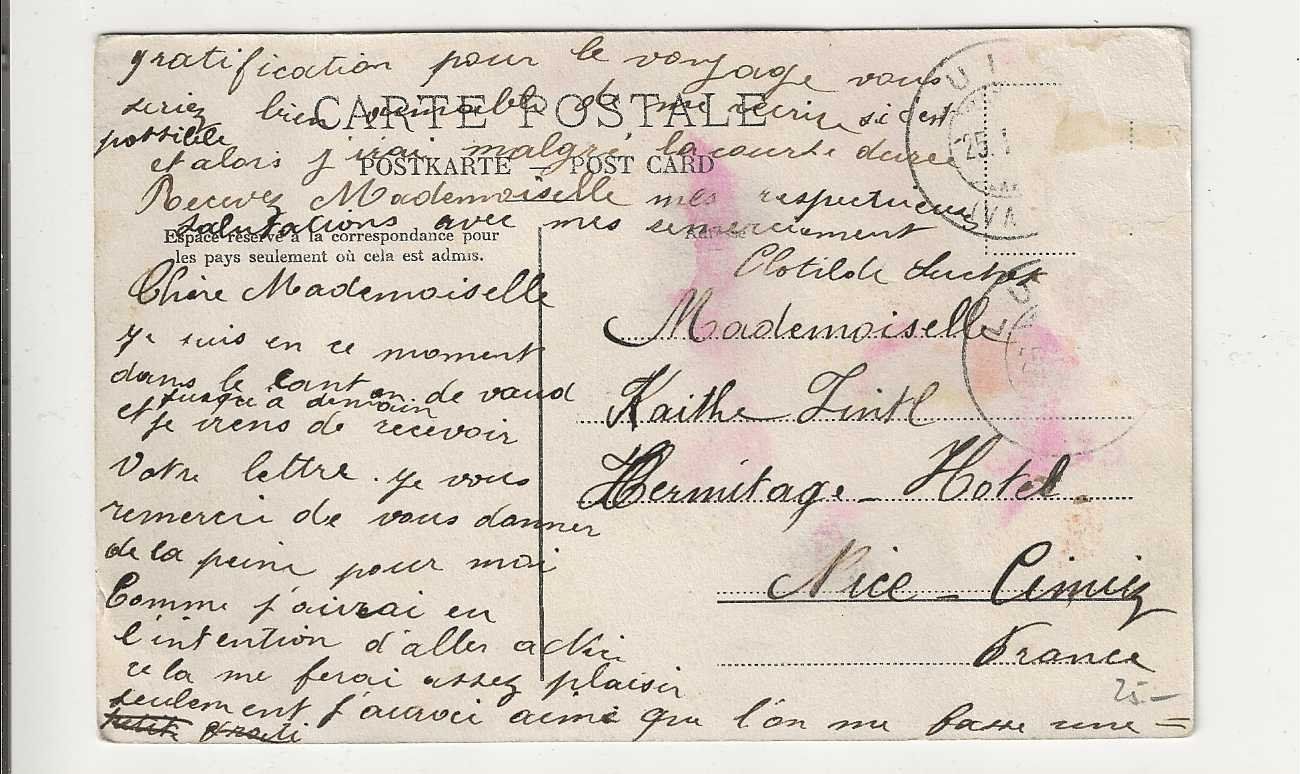 gratification pour le voyage vous
seriez bien aimable de me ecrire si c'est
possible
CARTE POSTALE
et alors j'irai malgré la courte duree
POSTKARTE — POST CARD
Recevez Mademoiselle mes respectueuses
salutations avec mes remerciement
Clotilde
Espace réservé à la correspondance pour
les pays seulement où cela est admis.
Adresse
Chère Mademoiselle
Je suis en ce moment
dans le canton de vaud
jusqu'à demain
et je viens de recevoir
votre lettre. Je vous
remercie de vous donner
de la peine pour moi
Comme j'aurai eu
l'intention d'aller
cela me ferai assez plaisir
seulement j'aurai aimé que l'on me fasse une =
petite
Mademoiselle
Kaithe Lintl
Hermitage - Hotel.
Nice - Cimiez
France
25.-
25.